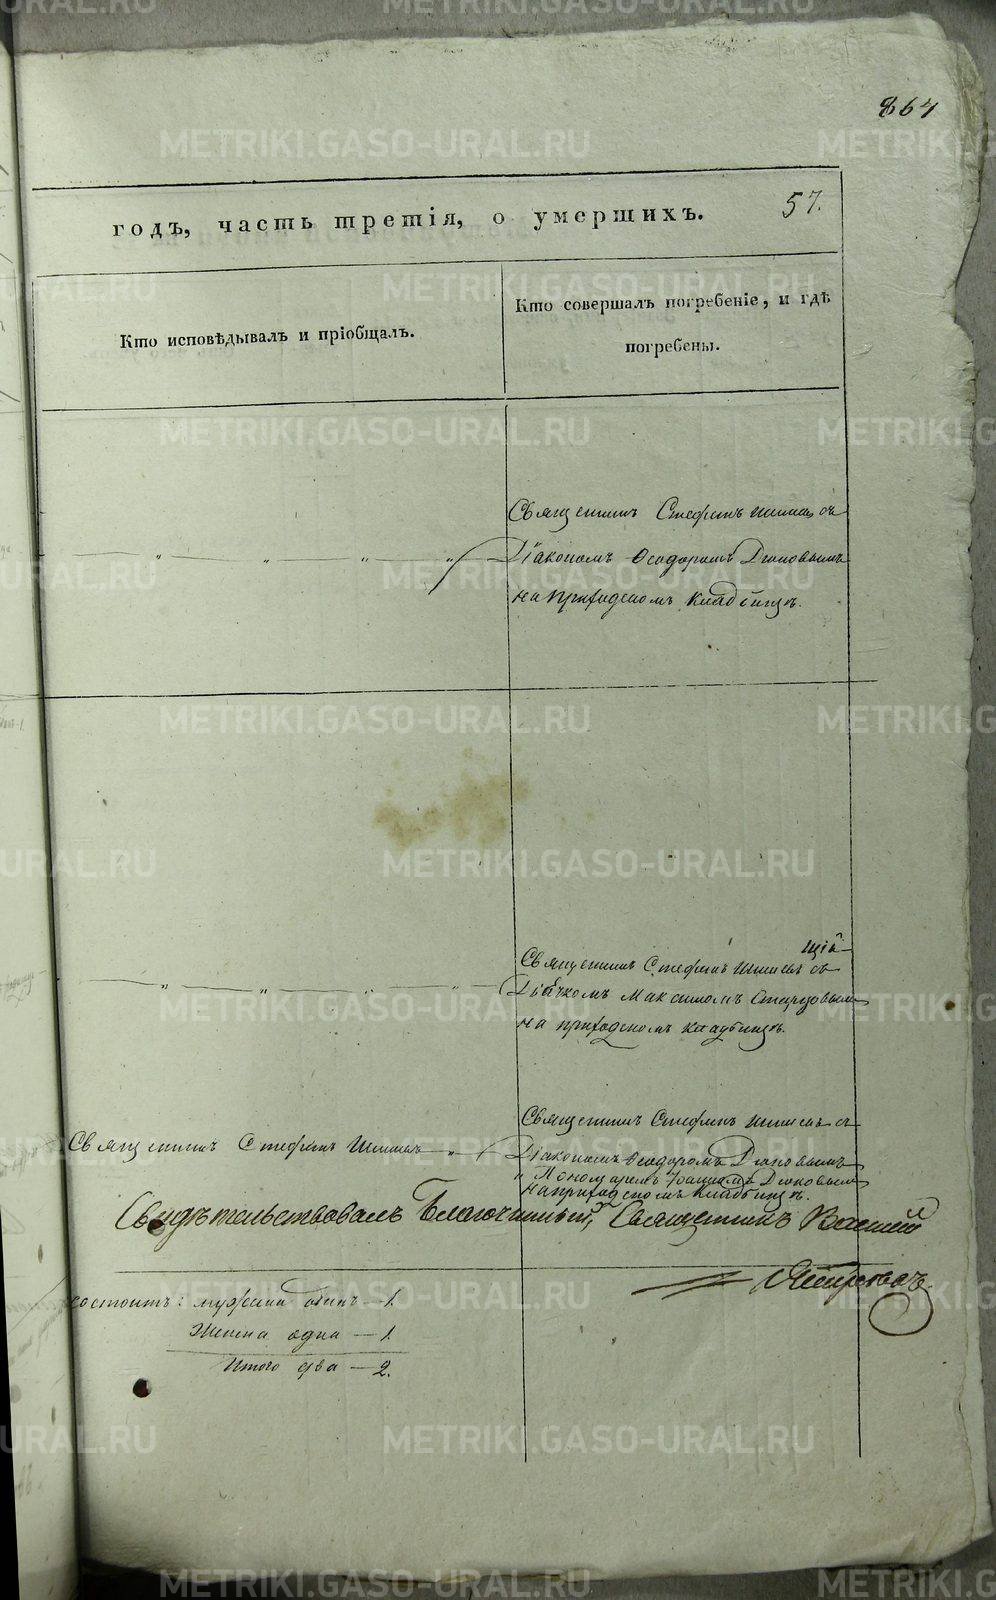 864
57.
годъ, часть третія, о умершихъ.
Кто исповѣдывалъ и пріобщалъ.
Кто совершалъ погребеніе, и гдѣ
погребены.
Священникъ Стефанъ съ
Діакономъ Ѳеодоромъ
на приходскомъ кладбищѣ.
Священникъ Стефанъ съ
Дьячкомъ Максимомъ
на приходскомъ кладбищѣ.
Священникъ Стефанъ
Священникъ Стефанъ съ
Діакономъ Ѳеодоромъ
и Пономаремъ Іоанномъ
на приходскомъ кладбищѣ.
Свидѣтельствовалъ Благочинный, Священникъ Василій
состоитъ: мужеска одинъ — 1.
Женска одна — 1.
Итого два — 2.
METRIKI.GASO-URAL.RU